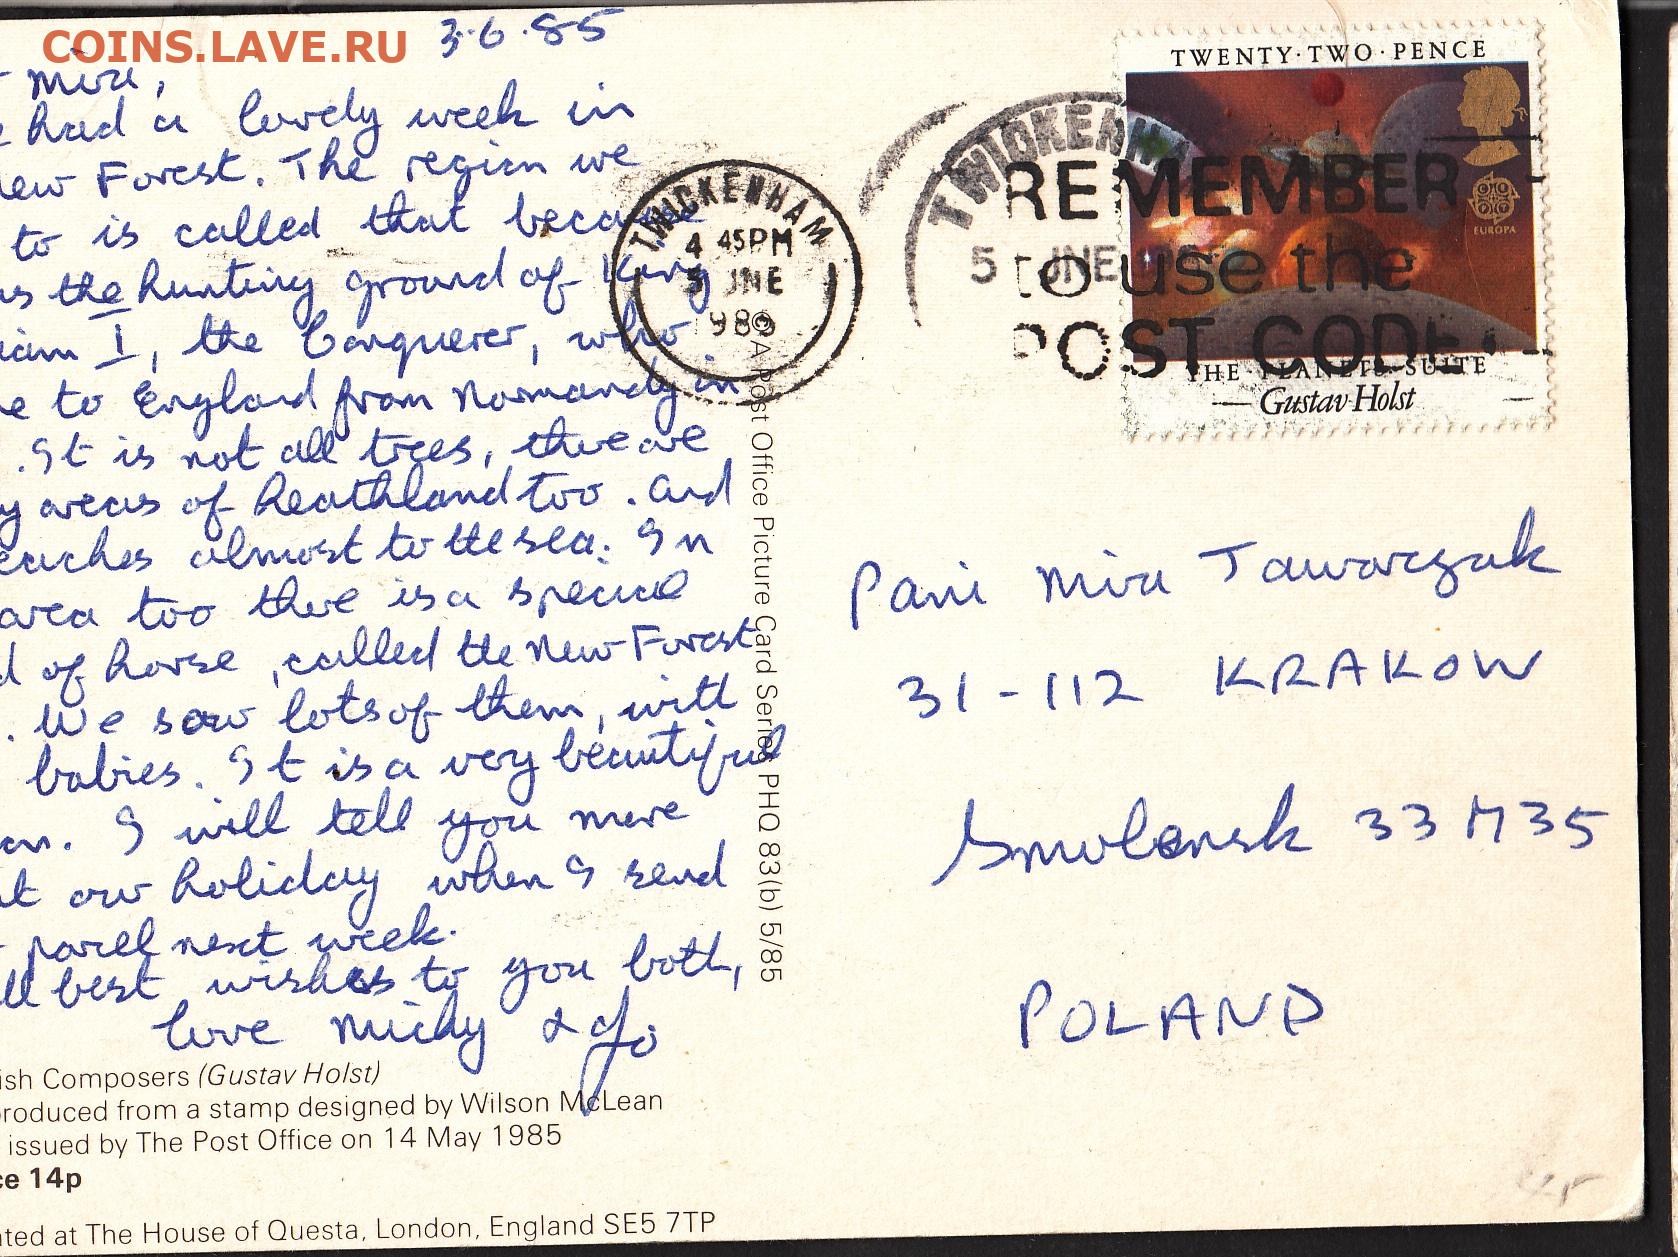 COINS.LAVE.RU
3.6.85
Mira,
had a lovely week in
New Forest. The region we
to is called that because
the hunting ground of King
I, the Conquerer, who
to England from Normandy in
. It is not all trees, there are
areas of heathland too. And
reaches almost to the sea. In
area too there is a special
of horse, called the New Forest
. We saw lots of them, with
babies. It is a very beautiful
. I will tell you more
our holiday when I send
parcel next week.
best wishes to you both,
love Micky & Jo
ish Composers (Gustav Holst)
produced from a stamp designed by Wilson McLean
issued by The Post Office on 14 May 1985
ce 14p
nted at The House of Questa, London, England SE5 7TP
© A Post Office Picture Card Series PHQ 83(b) 5/85
TWICKENHAM
4 45PM
5 JNE
198
TWICKENHA
5 JNE
REMEMBER
to use the
POST CODE
TWENTY·TWO·PENCE
EUROPA
THE·PLANETS·SUITE
Gustav·Holst
Pani Mira Tawarczak
31-112 KRAKOW
Smolensk 33 M35
POLAND